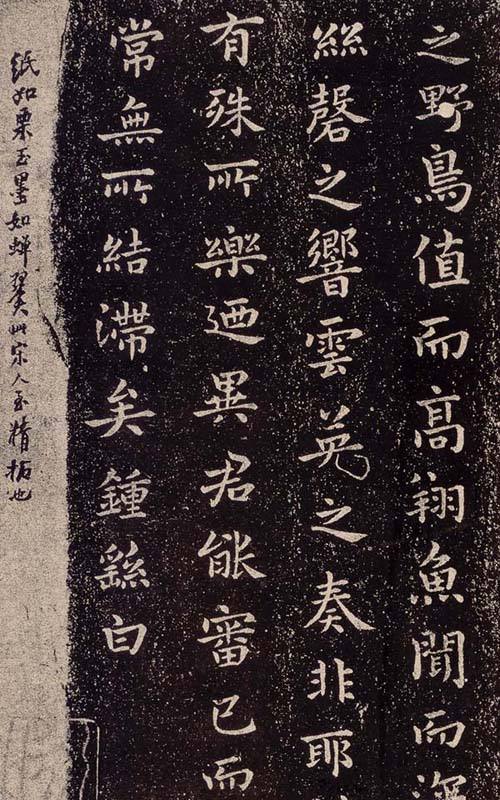 之野鳥值而高翔魚聞而深
絲磬之響雲英之奏非耶
有殊所樂廼異君能審己而
常無所結滯矣鍾繇白
紙如栗玉墨如蟬翼此宋人至精拓也